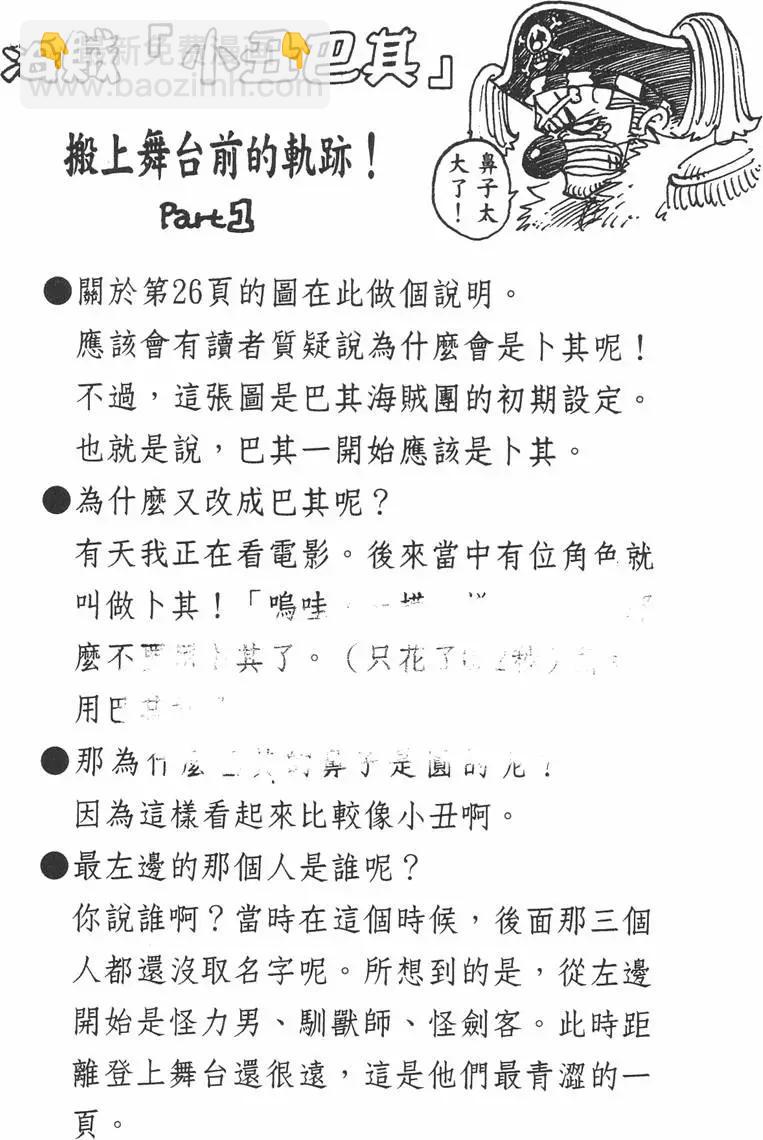 海賊「小丑巴其」
www.baozimh.com
搬上舞台前的軌跡!
Part 1
鼻子太
大了!
●關於第26頁的圖在此做個說明。
應該會有讀者質疑說為什麼會是卜其呢!
不過,這張圖是巴其海賊團的初期設定。
也就是說,巴其一開始應該是卜其。
●為什麼又改成巴其呢?
有天我正在看電影。後來當中有位角色就
叫做卜其!「嗚哇
麼不 其了。(只花了
用巴
●那為什麼 鼻子是圓的呢!
因為這樣看起來比較像小丑啊。
●最左邊的那個人是誰呢?
你說誰啊?當時在這個時候,後面那三個
人都還沒取名字呢。所想到的是,從左邊
開始是怪力男、馴獸師、怪劍客。此時距
離登上舞台還很遠,這是他們最青澀的一
頁。